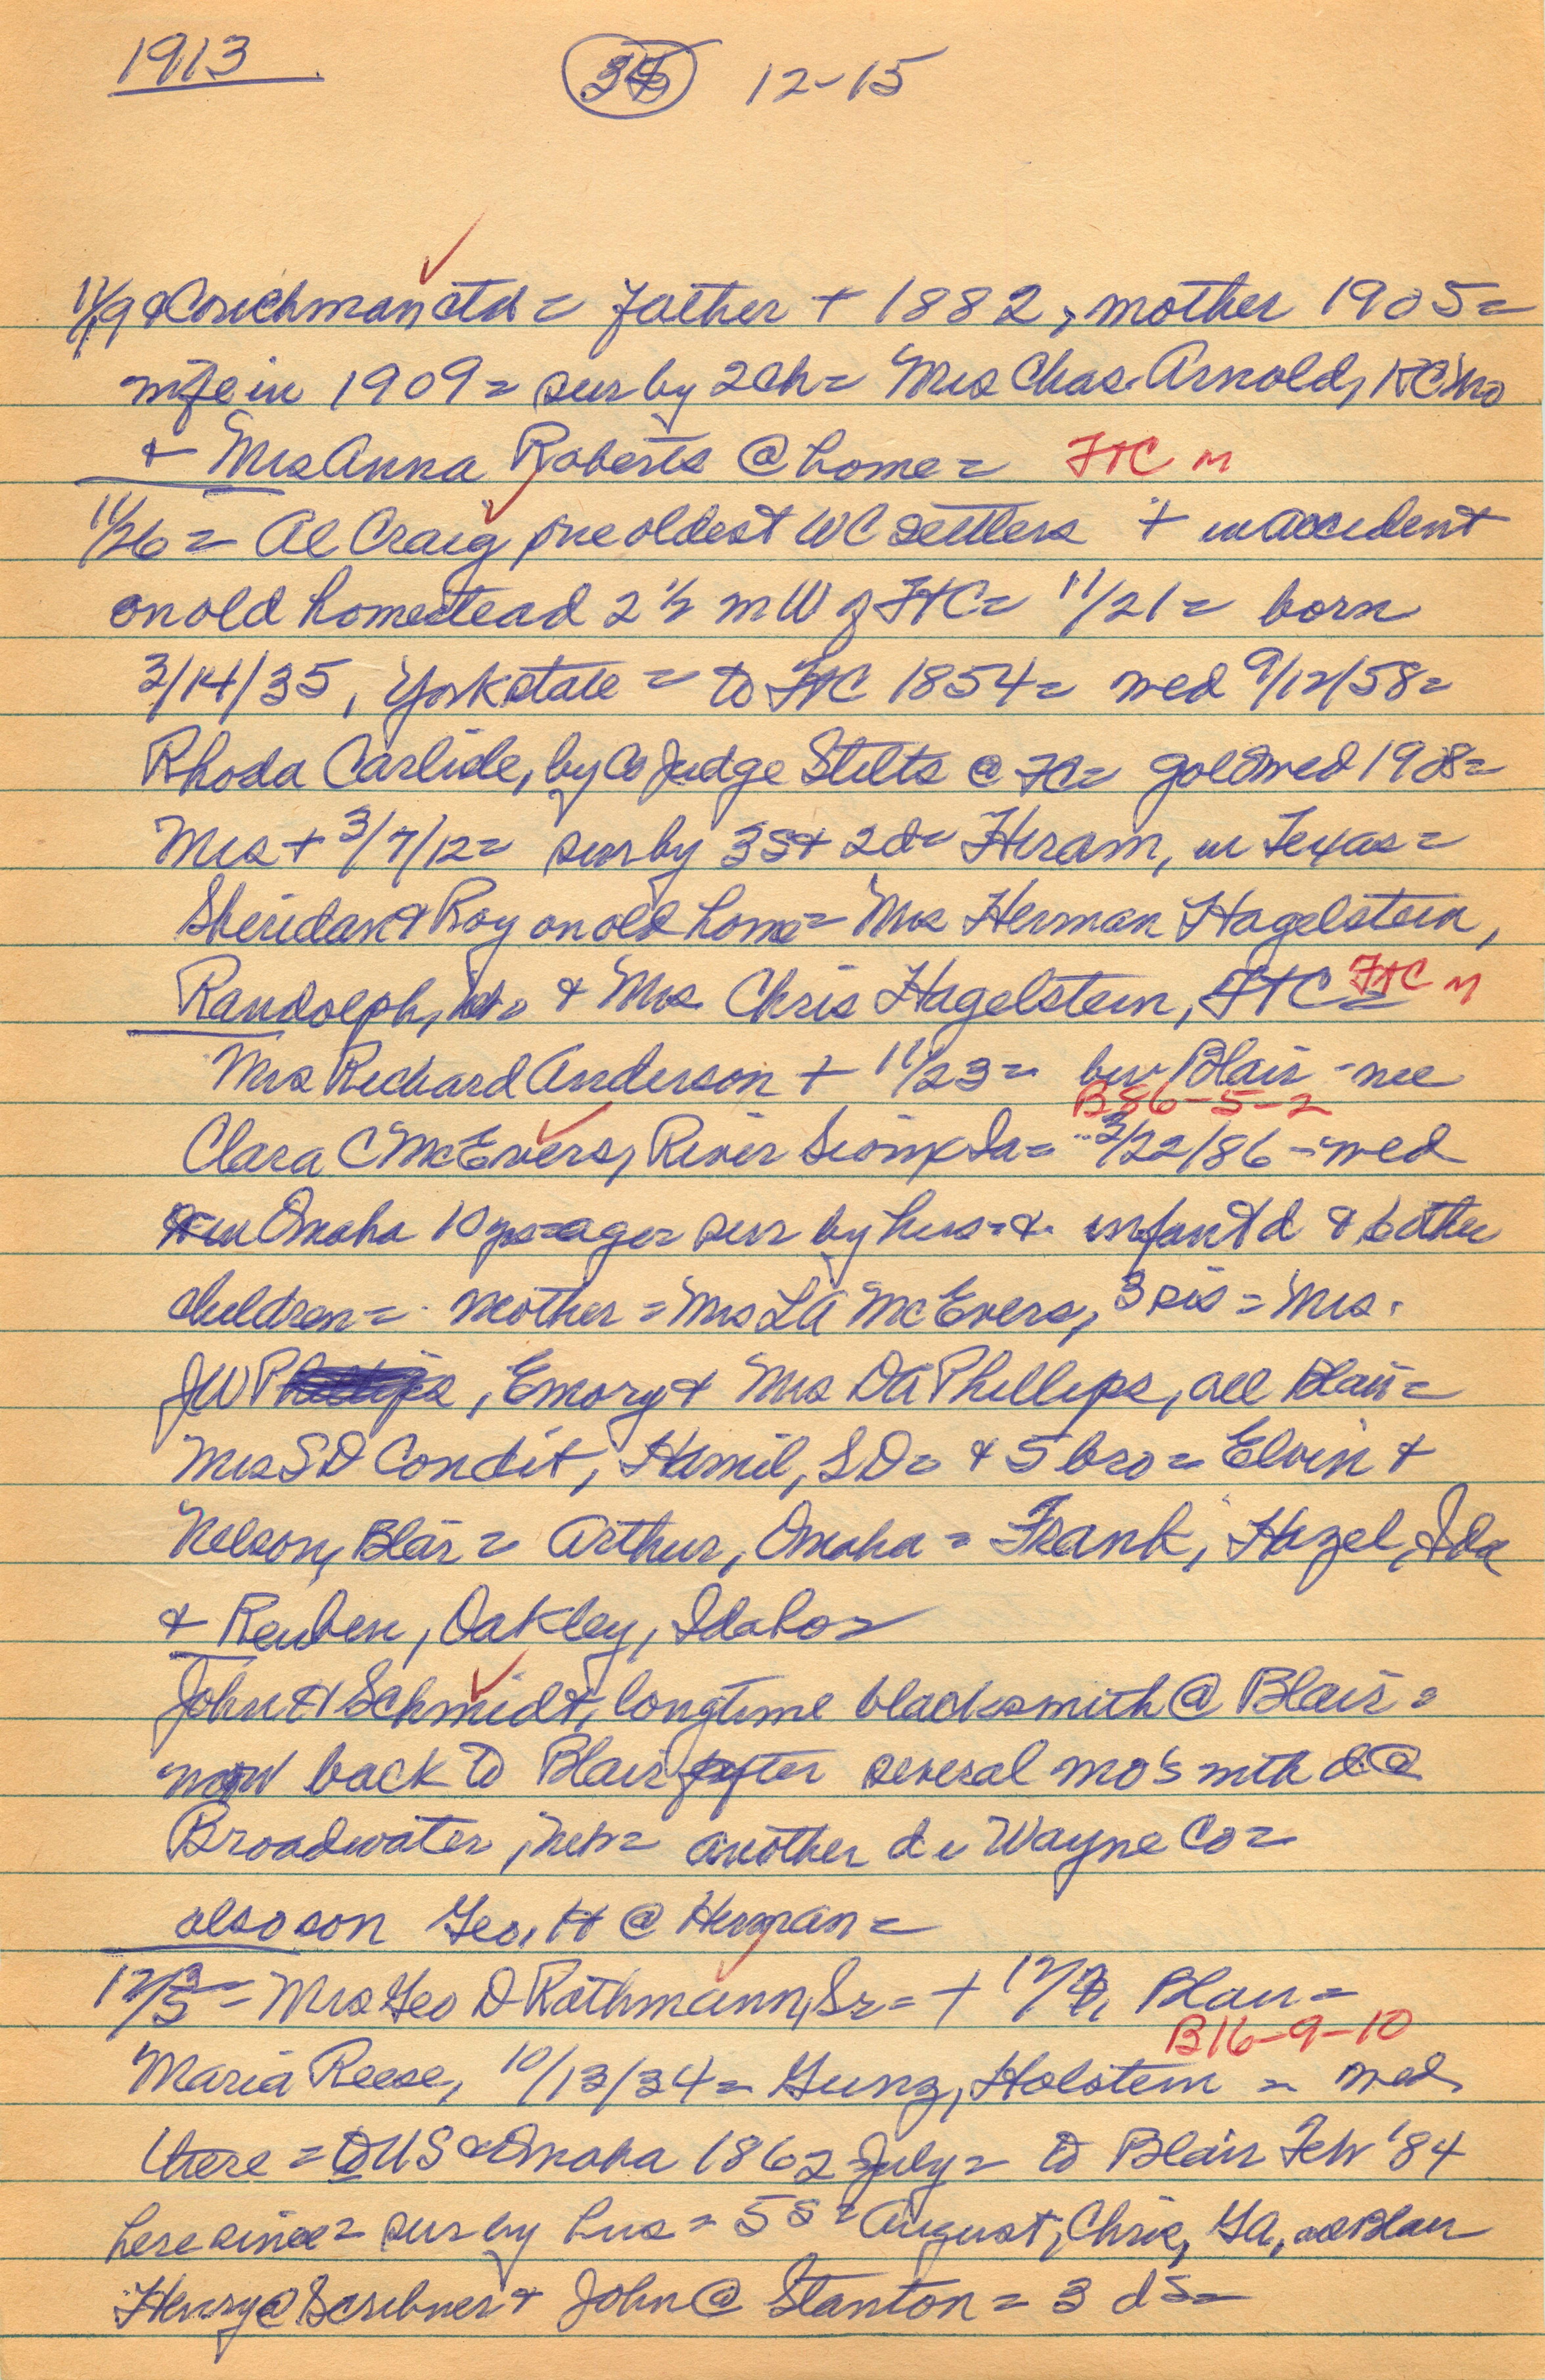 1913
35 12-15
11/19 & Couchman ctd = father + 1882, mother 1905 =
wife in 1909 = sur by 2 ch = Mrs Chas. Arnold, KC Mo
& Mrs Anna Roberts @ home = FTC M
11/26 = Al Craig, one oldest WC settlers + in accident
on old homestead 2 1/2 m W of FTC = 11/21 = born
3/14/35, York state = to FTC 1854 = wed 9/12/58 =
Rhoda Carlisle, by Co Judge Stilts @ FC = gold wed 1908 =
Mrs + 3/7/12 = sur by 3 s & 2 d = Hiram, in Texas =
Sheridan & Roy on old home = Mrs Herman Hagelstein,
Randolph, Neb & Mrs Chris Hagelstein, FTC = FTC M
Mrs Richard Anderson + 11/23 = bur Blair - nee
B 86-5-2
Clara C McEvers, River Sioux Ia = 3/22/86 - wed
in Omaha 10 yrs ago = sur by hus. & infant d & 6 other
children = mother = Mrs LA McEvers, 3 sis = Mrs.
JW, Emory & Mrs DA Phillips, all Blair =
Mrs SD Condit, Hamil, SD = & 5 bro = Elvin &
Nelson, Blair = Arthur, Omaha = Frank, Hazel, Ida
& Reuben, Oakley, Idaho =
John H Schmidt, longtime blacksmith @ Blair =
now back to Blair after several mo's with d @
Broadwater, Neb = another d in Wayne Co =
also son Geo. H @ Herman =
12/3 = Mrs Geo D Rathmann, Sr = + 12/2, Blair =
B16-9-10
Maria Reese, 10/13/34 = Gunz, Holstein = wed
there = to US & Omaha 1862 July = to Blair Feb '84
here since = sur by hus = 5 s = August, Chris, GA, all Blair
Henry @ Scribner & John @ Stanton = 3 ds =